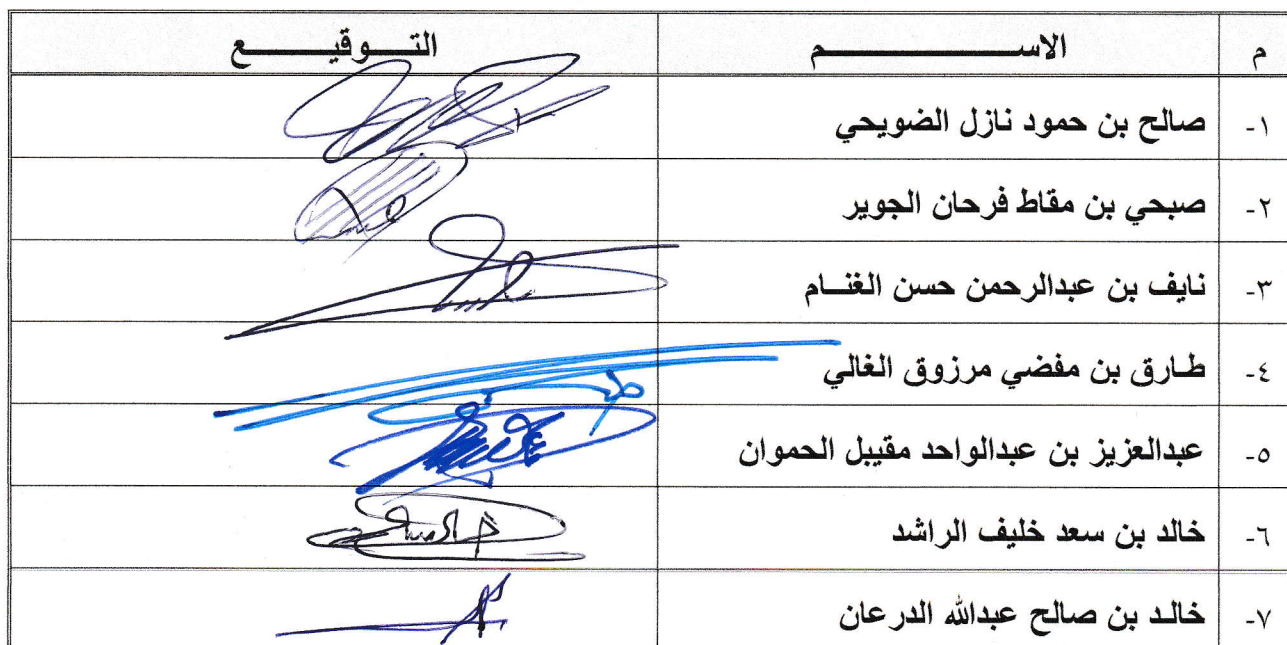 م الاســـــــم التـــوقيــــع
١- صالح بن حمود نازل الضويحي
٢- صبحي بن مقاط فرحان الجوير
٣- نايف بن عبدالرحمن حسن الغنــام
٤- طـارق بن مفضي مرزوق الغالي
٥- عبدالعزيز بن عبدالواحد مقيبل الحموان
٦- خالد بن سعد خليف الراشد
٧- خالـد بن صالح عبدالله الدرعان